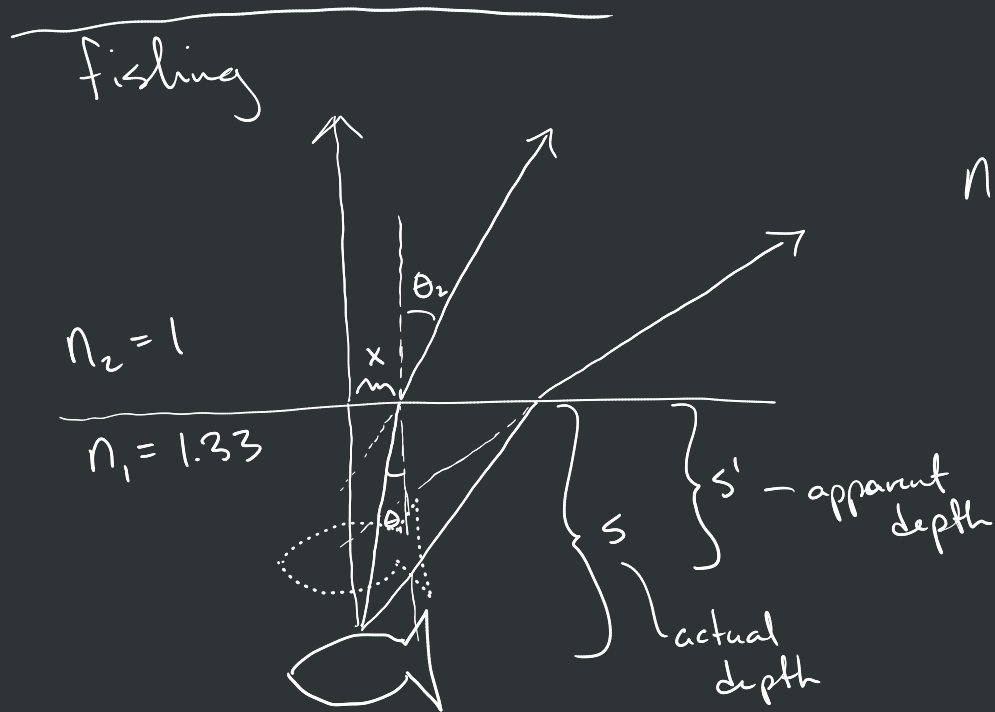 fishing
n
θ₂
n₂ = 1
x
n₁ = 1.33
θ₁
s' – apparent
depth
s
actual
depth